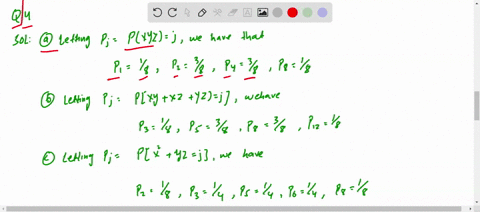 Q4
SOL: (a) Letting P_j = P(XYZ)=j, we have that
P_1 = 1/8, P_2 = 3/8, P_4 = 3/8, P_8 = 1/8
(b) Letting P_j = P[XY+XZ+YZ)=j], we have
P_3 = 1/8, P_5 = 3/8, P_8 = 3/8, P_12 = 1/8
(c) Letting P_j = P[X²+YZ=j], we have
P_2 = 1/8, P_3 = 1/4, P_5 = 1/4, P_6 = 1/4, P_8 = 1/8